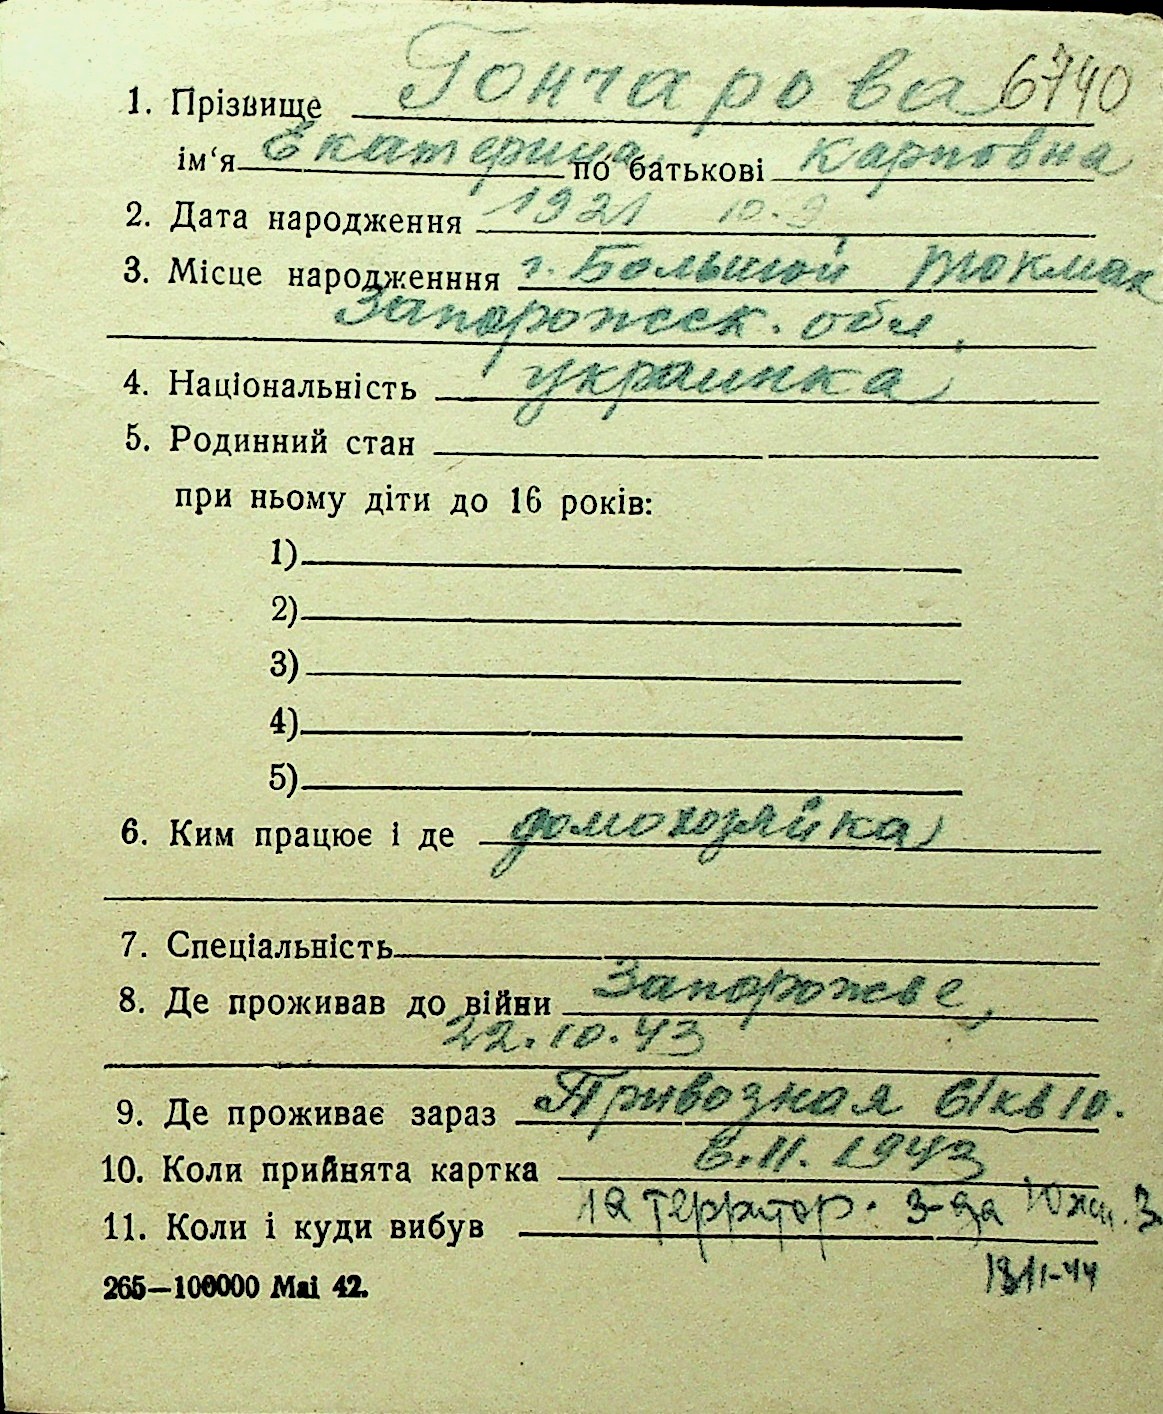 1. Прізвище Гончарова 6740
ім‘я Екатерина по батькові Карповна
2. Дата народження 1921 10.9
3. Місце народженння г. Большой Токмак
Запорожск. обл.
4. Національність украинка
5. Родинний стан
при ньому діти до 16 років:
1)
2)
3)
4)
5)
6. Ким працює і де домохозяйка
7. Спеціальність
8. Де проживав до війни Запорожье,
22.10.43
9. Де проживає зараз Привозная 61 кв 10.
10. Коли прийнята картка 6.11.1943
11. Коли і куди вибув территор. з-да
265—100000 Mai 42.